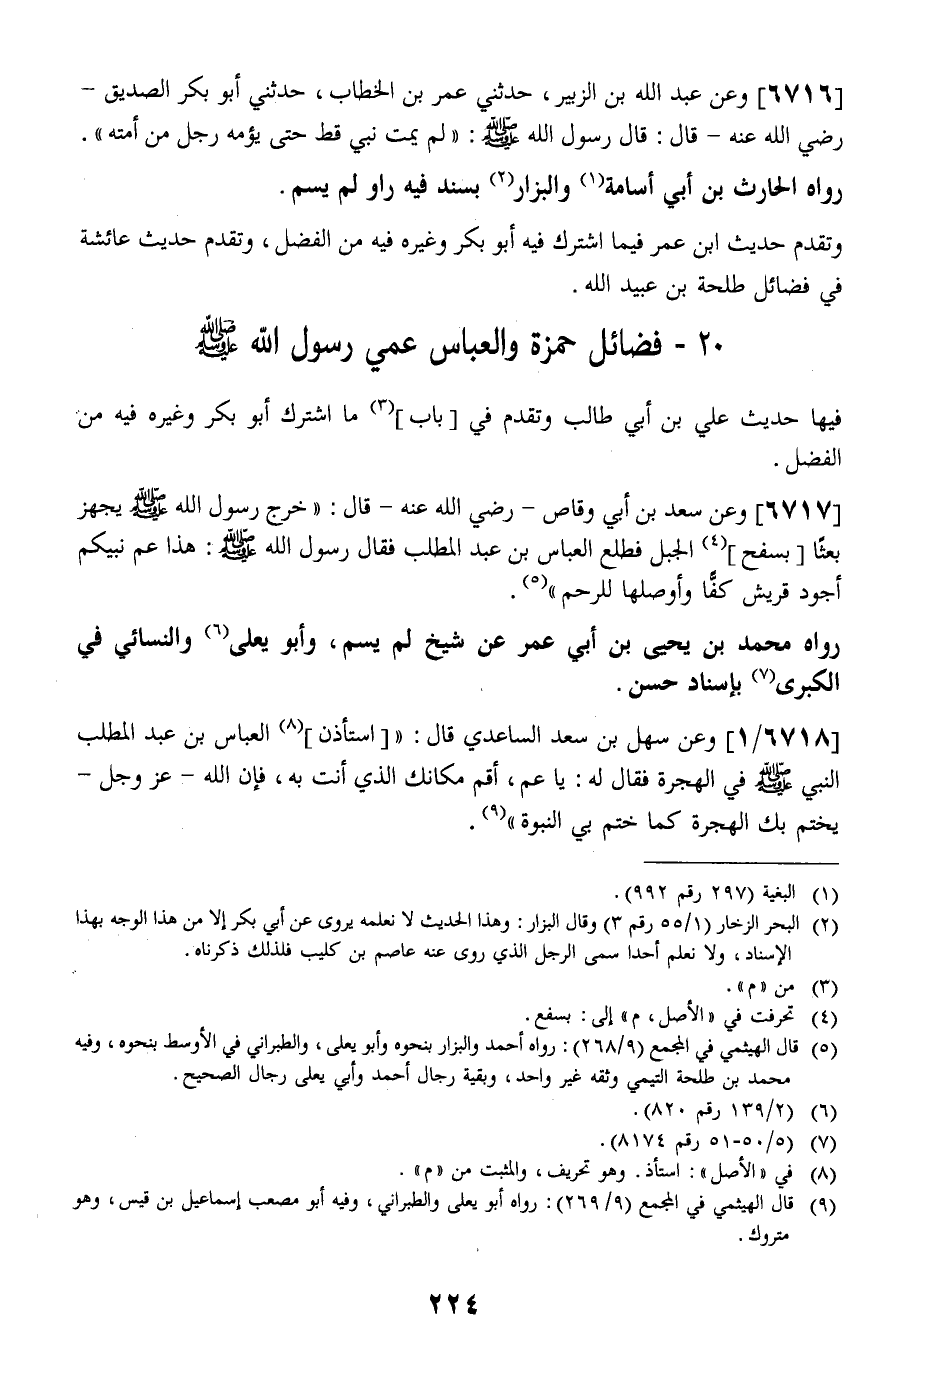 [٦٧١٦] وعن عبد الله بن الزبير ، حدثني عمر بن الخطاب ، حدثني أبو بكر الصديق –
رضي الله عنه – قال : قال رسول الله ﷺ : « لم يمت نبي قط حتى يؤمه رجل من أمته » .
رواه الحارث بن أبي أسامة(١) والبزار(٢) بسند فيه راو لم يسم .
وتقدم حديث ابن عمر فيما اشترك فيه أبو بكر وغيره فيه من الفضل ، وتقدم حديث عائشة
في فضائل طلحة بن عبيد الله .
٢٠ - فضائل حمزة والعباس عمي رسول الله ﷺ
فيها حديث علي بن أبي طالب وتقدم في [ باب ](٣) ما اشترك أبو بكر وغيره فيه من
الفضل .
[٦٧١٧] وعن سعد بن أبي وقاص – رضي الله عنه – قال : « خرج رسول الله ﷺ يجهز
بعثًا [ بسفح ](٤) الجبل فطلع العباس بن عبد المطلب فقال رسول الله ﷺ : هذا عم نبيكم
أجود قريش كفًّا وأوصلها للرحم »(٥) .
رواه محمد بن يحيى بن أبي عمر عن شيخ لم يسم ، وأبو يعلى(٦) والنسائي في
الكبرى(٧) بإسناد حسن .
[١/٦٧١٨] وعن سهل بن سعد الساعدي قال : « [ استأذن ](٨) العباس بن عبد المطلب
النبي ﷺ في الهجرة فقال له : يا عم ، أقم مكانك الذي أنت به ، فإن الله – عز وجل –
يختم بك الهجرة كما ختم بي النبوة »(٩) .
(١) البغية (٢٩٧ رقم ٩٩٢) .
(٢) البحر الزخار (٥٥/١ رقم ٣) وقال البزار : وهذا الحديث لا نعلمه يروى عن أبي بكر إلا من هذا الوجه بهذا
الإسناد ، ولا نعلم أحدا سمى الرجل الذي روى عنه عاصم بن كليب فلذلك ذكرناه .
(٣) من « م » .
(٤) تحرفت في « الأصل ، م » إلى : بسفع .
(٥) قال الهيثمي في المجمع (٢٦٨/٩) : رواه أحمد والبزار بنحوه وأبو يعلى ، والطبراني في الأوسط بنحوه ، وفيه
محمد بن طلحة التيمي وثقه غير واحد ، وبقية رجال أحمد وأبي يعلى رجال الصحيح .
(٦) (١٣٩/٢ رقم ٨٢٠) .
(٧) (٥٠/٥-٥١ رقم ٨١٧٤) .
(٨) في « الأصل » : استأذ . وهو تحريف ، والمثبت من « م » .
(٩) قال الهيثمي في المجمع (٢٦٩/٩) : رواه أبو يعلى والطبراني ، وفيه أبو مصعب إسماعيل بن قيس ، وهو
متروك .
٢٢٤